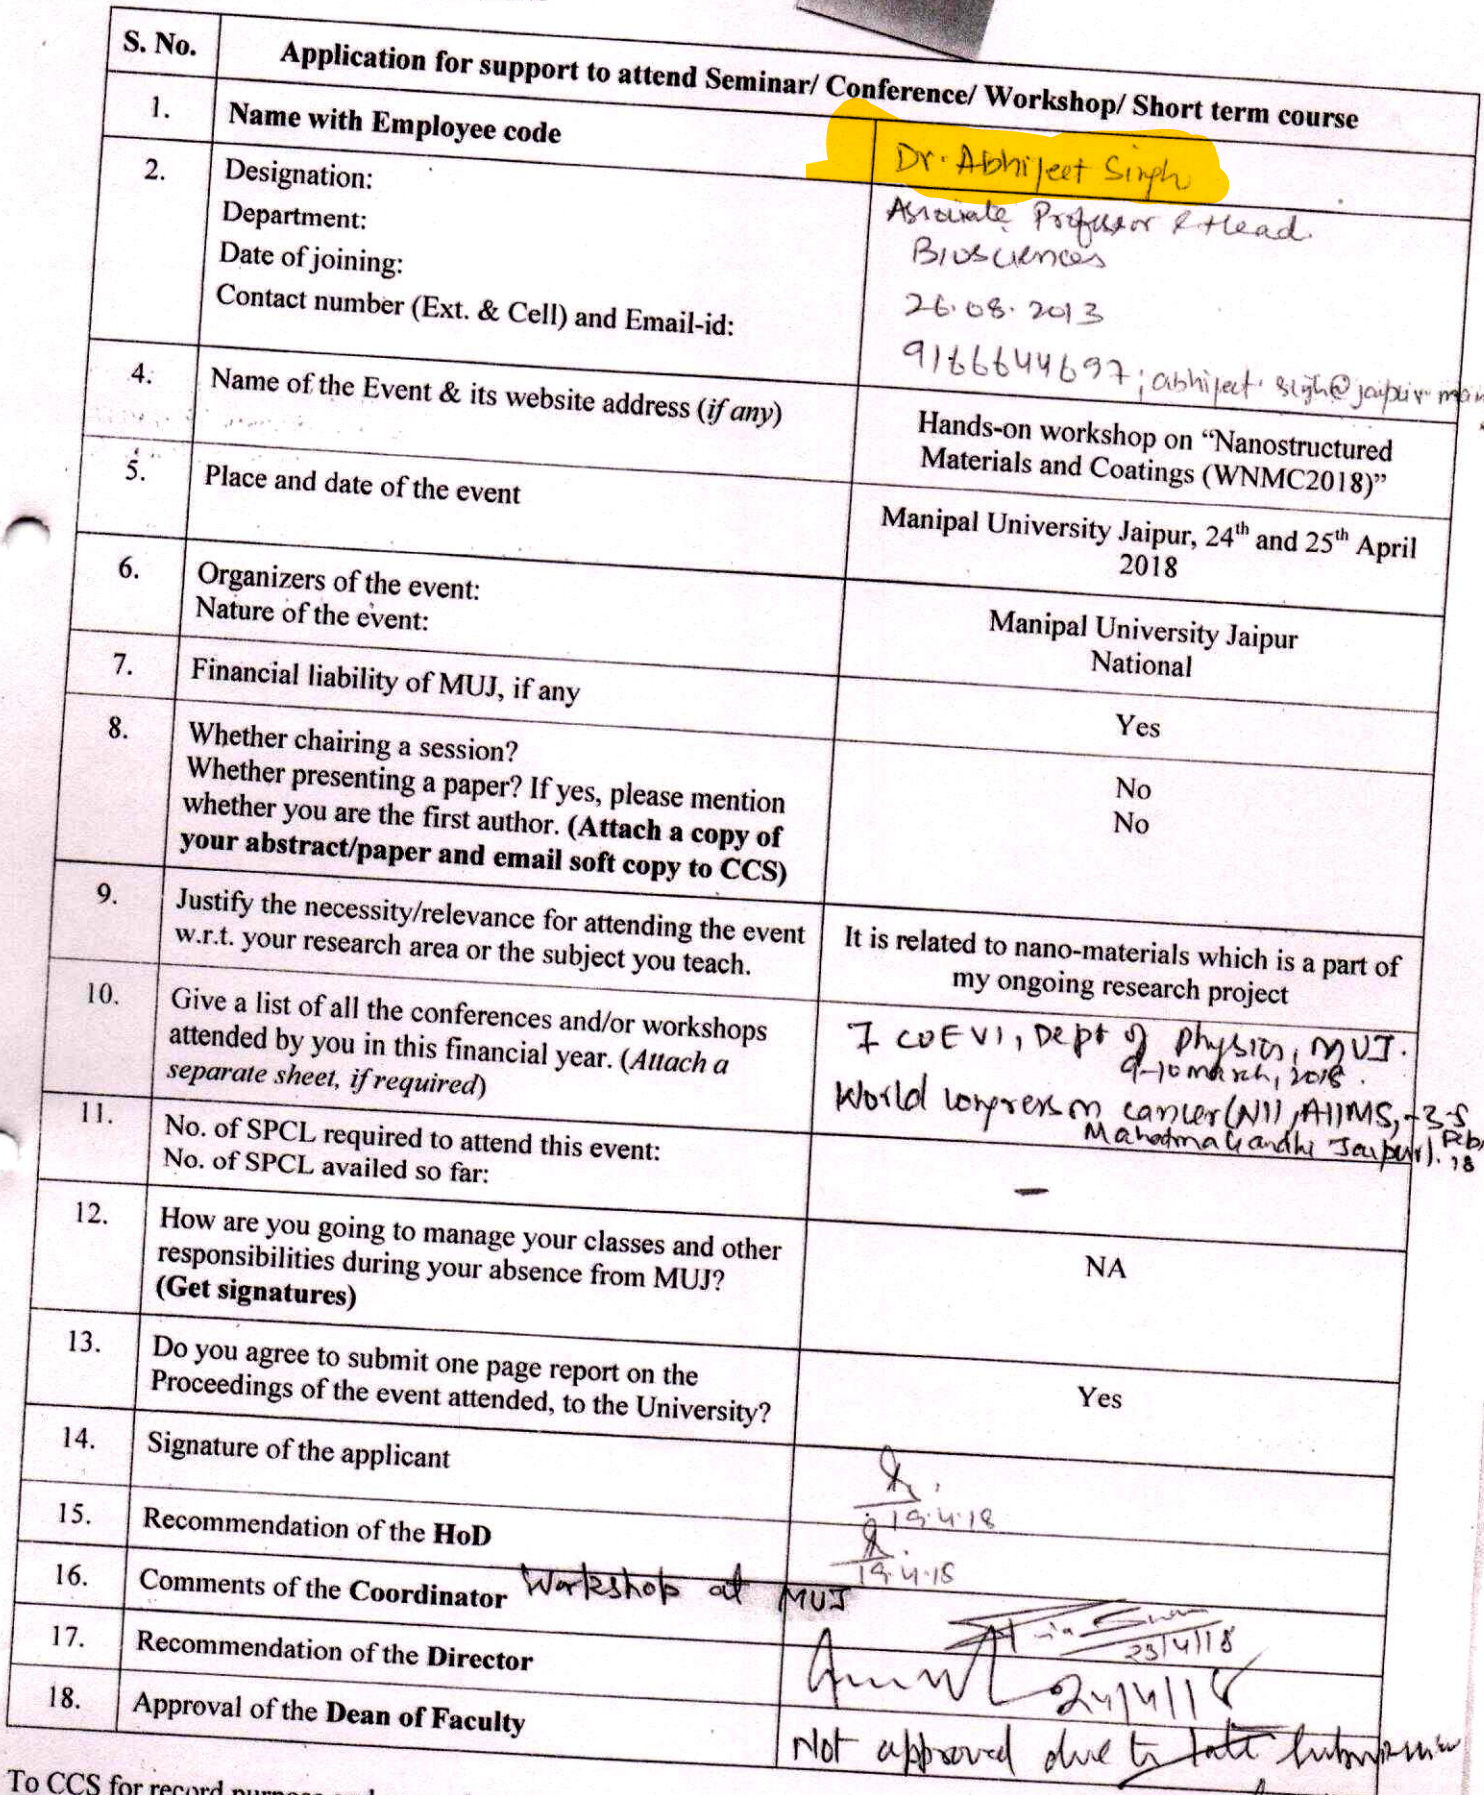 S. No. Application for support to attend Seminar/ Conference/ Workshop/ Short term course
1. Name with Employee code Dr. Abhijeet Singh
2. Designation: Associate Professor & Head
Department: Biosciences
Date of joining: 26.08.2013
Contact number (Ext. & Cell) and Email-id: 9166644697; abhijeet.singh@jaipur.man
4. Name of the Event & its website address (if any) Hands-on workshop on “Nanostructured
Materials and Coatings (WNMC2018)”
5. Place and date of the event Manipal University Jaipur, 24th and 25th April
2018
6. Organizers of the event: Manipal University Jaipur
Nature of the event: National
7. Financial liability of MUJ, if any Yes
8. Whether chairing a session? No
Whether presenting a paper? If yes, please mention No
whether you are the first author. (Attach a copy of
your abstract/paper and email soft copy to CCS)
9. Justify the necessity/relevance for attending the event It is related to nano-materials which is a part of
w.r.t. your research area or the subject you teach. my ongoing research project
10. Give a list of all the conferences and/or workshops I COEVI, Dept of Physics, MUJ.
attended by you in this financial year. (Attach a 9-10 March, 2018.
separate sheet, if required) World Congress on cancer (NII, AIIMS, -3-5
Mahatma Gandhi Jaipur). Feb, 18
11. No. of SPCL required to attend this event: –
No. of SPCL availed so far:
12. How are you going to manage your classes and other NA
responsibilities during your absence from MUJ?
(Get signatures)
13. Do you agree to submit one page report on the Yes
Proceedings of the event attended, to the University?
14. Signature of the applicant
19.4.18
15. Recommendation of the HoD
19.4.18
16. Comments of the Coordinator Workshop at MUJ
23/4/18
17. Recommendation of the Director
24/4/18
18. Approval of the Dean of Faculty Not approved due to late submission
To CCS for record purpose